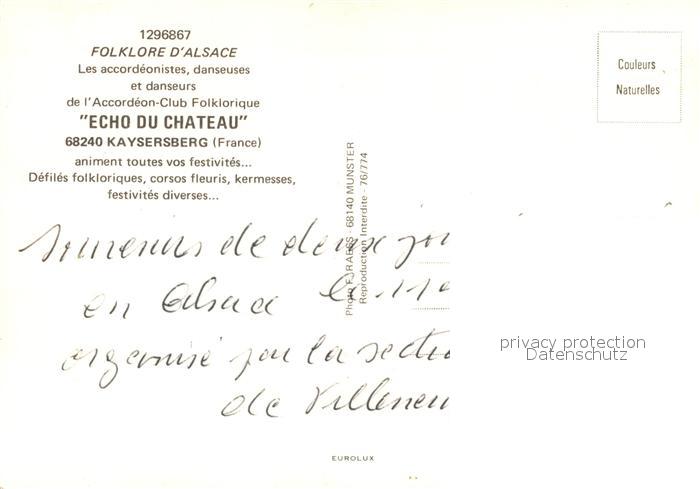 1296867
FOLKLORE D'ALSACE
Les accordéonistes, danseuses
et danseurs
de l'Accordéon-Club Folklorique
"ECHO DU CHATEAU"
68240 KAYSERSBERG (France)
animent toutes vos festivités...
Défilés folkloriques, corsos fleuris, kermesses,
festivités diverses...
Couleurs
Naturelles
68140 MUNSTER
Reproduction Interdite - 76/774
Souvenirs de deux jou
en Alsace
organisé par la sectio
de Villeneu
privacy protection
Datenschutz
EUROLUX